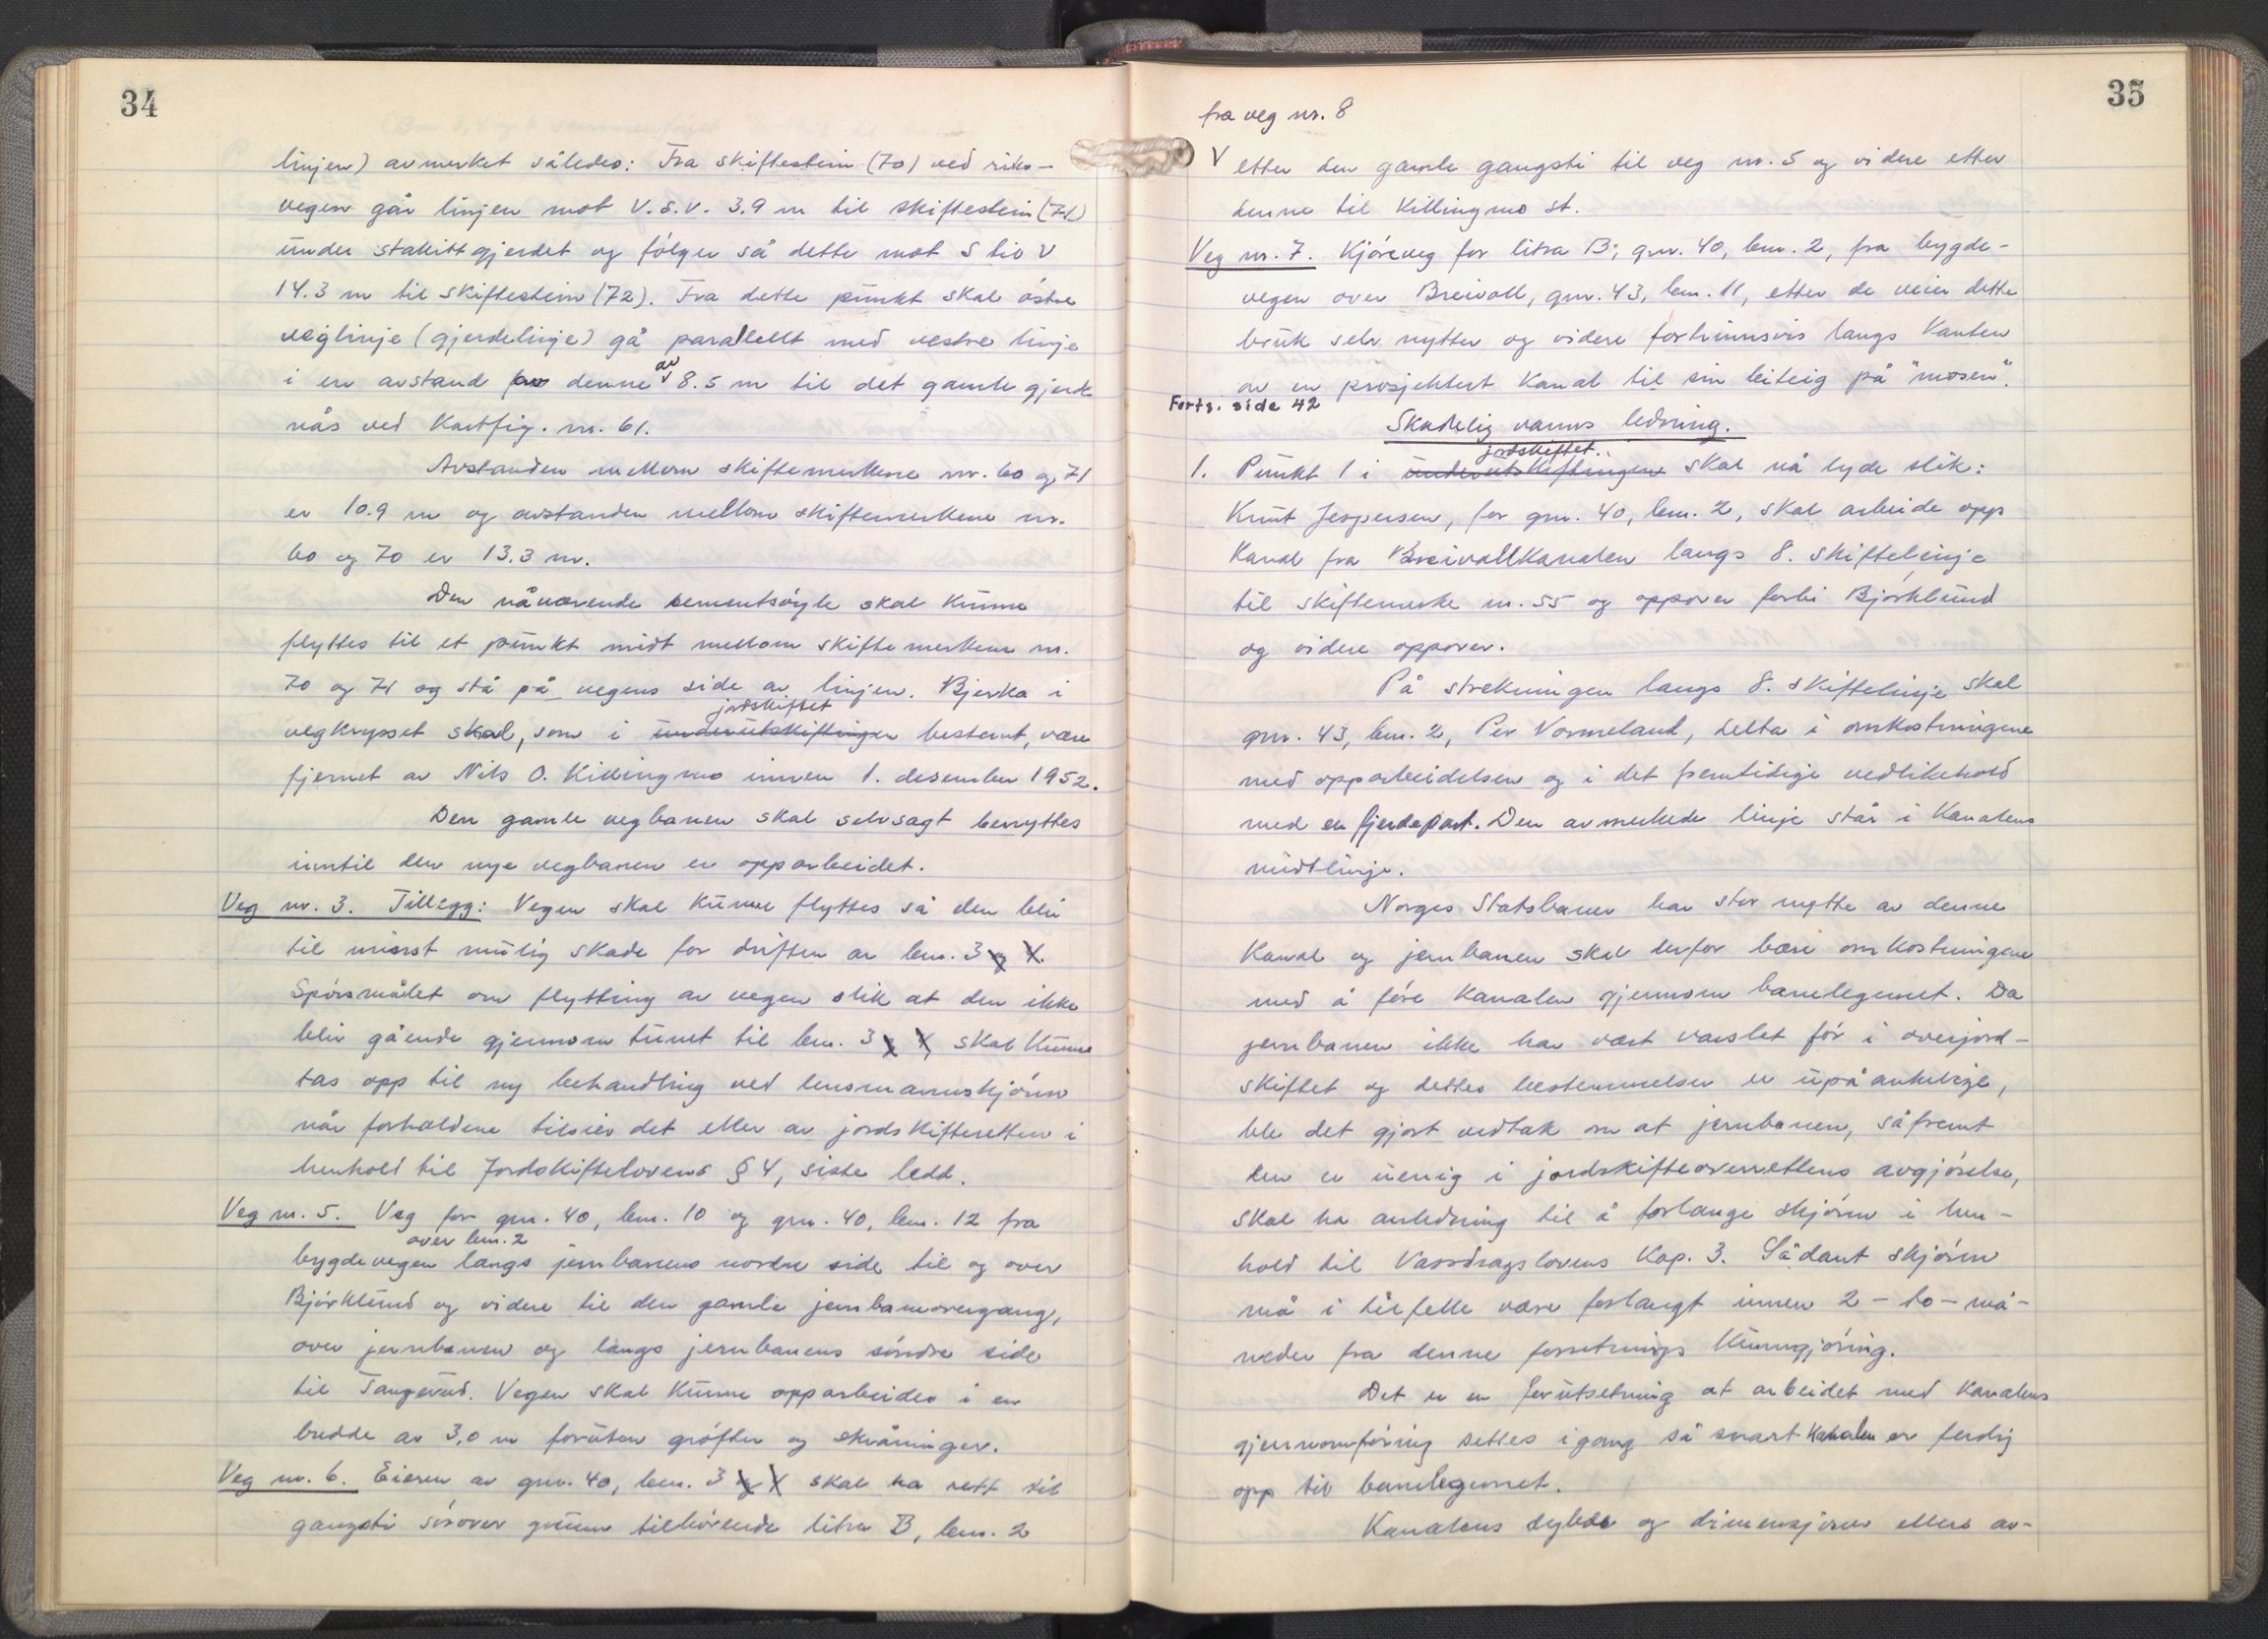 34
linjen) avmerket således: Fra skiftestein (70) ved riks-
vegen går linjen mot V.S.V. 3.9 m til skiftestein (71)
under stakittgjerdet og følger så dette mot S tio V
14.3 m til skiftestein (72). Fra dette punkt skal østre
veglinje (gjerdelinje) gå parallellt med vestre linje
i en avstand fra denne av 8.5 m til det gamle gjerde
nås ved Kartfig. nr. 61.
Avstanden mellom skiftemerkene nr. 60 og 71
er 10.9 m og avstanden mellom skiftemerkene nr.
60 og 70 er 13.3 m.
Den nåværende sementsøyle skal kunne
flyttes til et punkt midt mellom skiftemerkene nr.
70 og 71 og stå på vegens side av linjen. Bjerka i
jordskiftet
vegkrysset skal, som i underutskiftningen bestemt, være
fjernet av Nils O. Killingmo innen 1. desember 1952.
Den gamle vegbanen skal selvsagt benyttes
inntil den nye vegbanen er opparbeidet.
Veg nr. 3. Tillegg: Vegen skal kunne flyttes så den blir
til minst mulig skade for driften av bnr. 3 og 4.
Spørsmålet om flytting av vegen slik at den ikke
blir gående gjennom tunet til bnr. 3 og 4, skal kunne
tas opp til ny behandling ved lensmannsskjønn
når forholdene tilsier det eller av jordskifteretten i
henhold til Jordskiftelovens § 4, siste ledd.
Veg nr. 5. Veg for gnr. 40, bnr. 10 og gnr. 40, bnr. 12 fra
over bnr. 2
bygdevegen langs jernbanens nordre side til og over
Bjørklund og videre til den gamle jernbaneovergang,
over jernbanen og langs jernbanens søndre side
til Tangerud. Vegen skal kunne opparbeides i en
bredde av 3,0 m foruten grøfter og skråninger.
Veg nr. 6. Eieren av gnr. 40, bnr. 3 og 4 skal ha rett til
gangsti sørover grunn tilhørende litra B, bnr. 2
35
fra veg nr. 8
V etter den gamle gangsti til veg nr. 5 og videre etter
denne til Killingmo st.
Veg nr. 7. Kjøreveg for litra B; gnr. 40, bnr. 2, fra bygde-
vegen over Breivoll, gnr. 43, bnr. 11, etter de veier dette
bruk selv nytter og videre fortrinnsvis langs kanten
av en prosjektert kanal til sin leiteig på "mosen".
Forts. side 42
Skadelig vanns ledning.
jordskiftet.
1. Punkt 1 i underutskiftningen skal nå lyde slik:
Knut Jespersen, for gnr. 40, bnr. 2, skal arbeide opp
Kanal fra Breivollkanalen langs 8. skiftelinje
til skiftemerke nr. 55 og oppover forbi Bjørklund
og videre oppover.
På strekningen langs 8. skiftelinje skal
gnr. 43, bnr. 2, Per Vormeland, delta i omkostningene
med opparbeidelsen og i det fremtidige vedlikehold
med en fjerdepart. Den avmerkede linje står i Kanalens
midtlinje.
Norges Statsbaner har stor nytte av denne
Kanal og jernbanen skal derfor bære omkostningene
med å føre Kanalen gjennom banelegemet. Da
jernbanen ikke har vært varslet før i overjord-
skiftet og dettes bestemmelser er upåankelige,
ble det gjort vedtak om at jernbanen, såfremt
den er uenig i jordskifteoverrettens avgjørelse,
skal ha anledning til å forlange skjønn i hen-
hold til Vassdragslovens Kap. 3. Sådant skjønn
må i tilfelle være forlangt innen 2 - to - må-
neder fra denne forretnings Kunngjøring.
Det er en forutsetning at arbeidet med Kanalens
gjennomføring settes igang så snart Kanalen er ferdig
opp til banelegemet.
Kanalens dybde og dimensjoner ellers av-